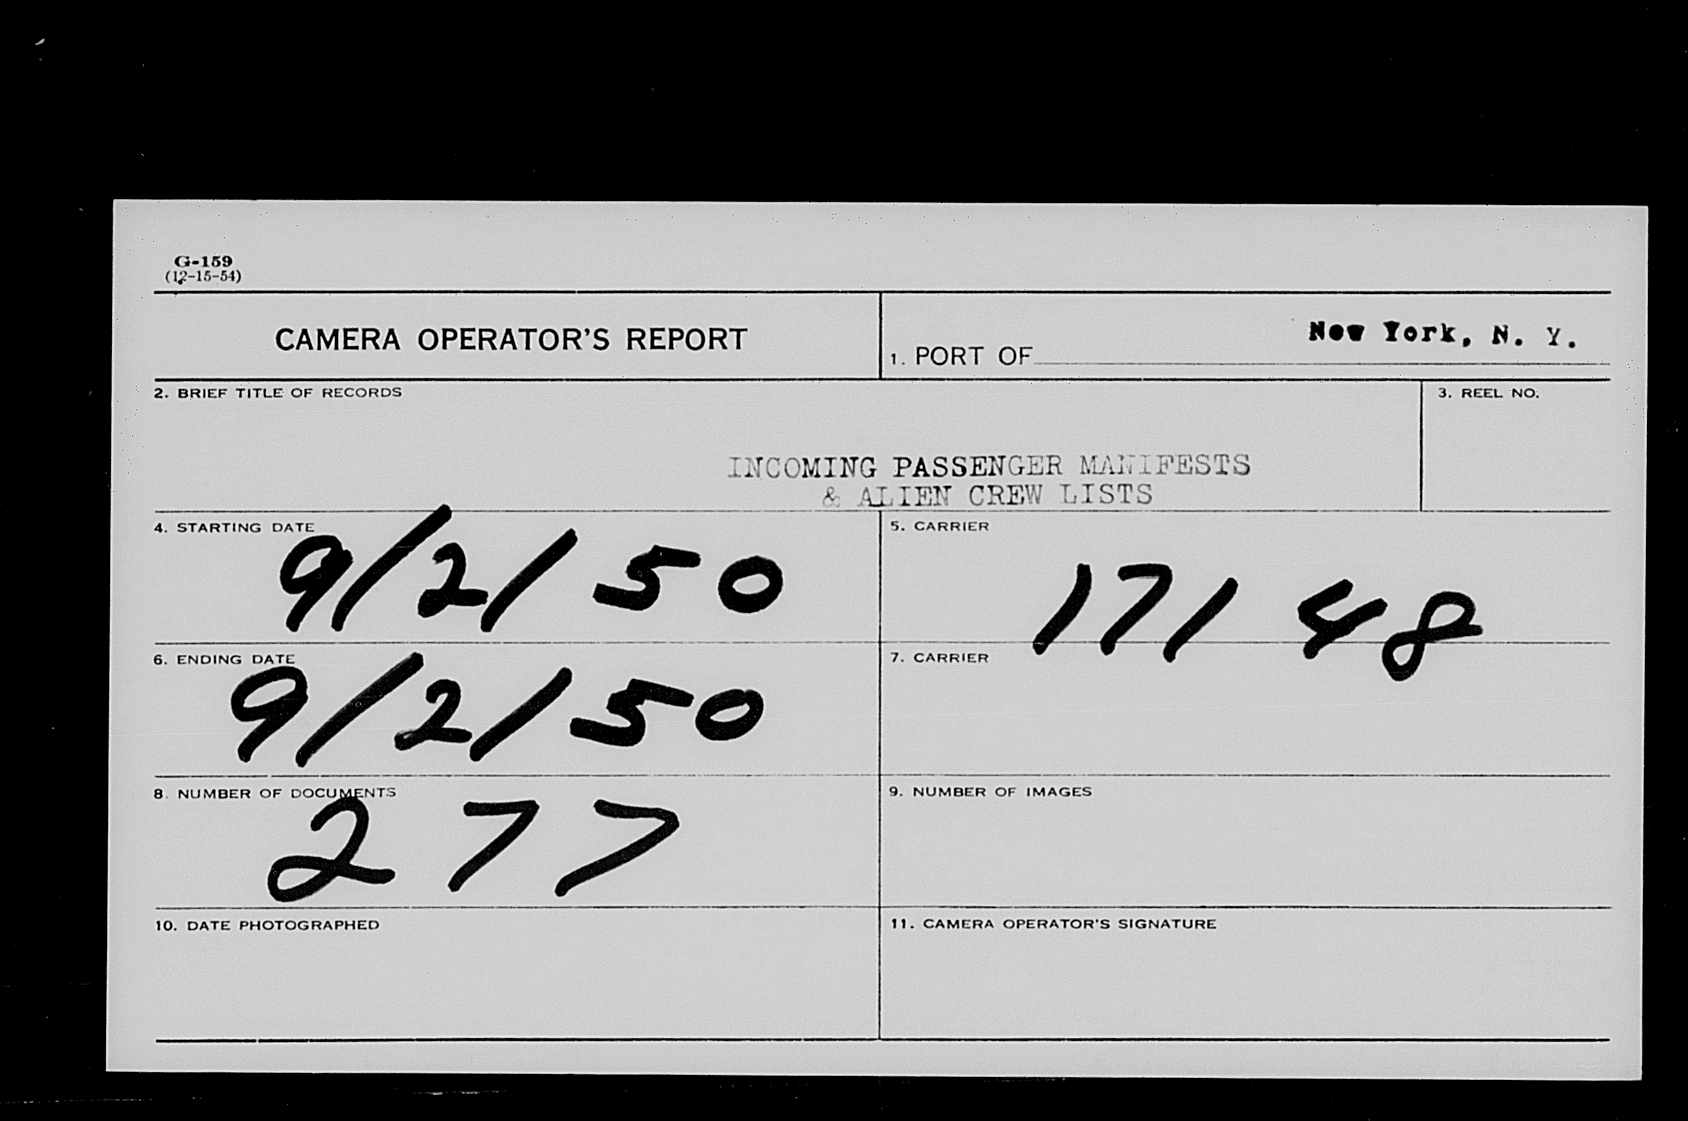 G-159
(12-15-54)
CAMERA OPERATOR'S REPORT
1. PORT OF New York, N. Y.
2. BRIEF TITLE OF RECORDS
INCOMING PASSENGER MANIFESTS
& ALIEN CREW LISTS
3. REEL NO.
4. STARTING DATE
9/2/50
5. CARRIER
17148
6. ENDING DATE
9/2/50
7. CARRIER
8. NUMBER OF DOCUMENTS
277
9. NUMBER OF IMAGES
10. DATE PHOTOGRAPHED
11. CAMERA OPERATOR'S SIGNATURE